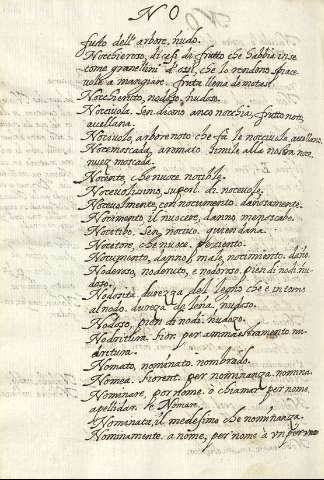 N O
fusto dell' arbore, nudo.
Nocchieroso, di cesi di frutto che habbia in se
come granellini d'ossi, che lo rendono spiace
vole a mangiare. fruta llena de motas.
Nocchieruto, nodoso, nudoso.
Nocciuola. Sen dicono anco nocchia, frutto noto,
avellana.
Nocciuolo, arbore noto che fa la nocciuola, avellano.
Noce moscada, aromato simile alla nostra noce,
nuez moscada.
Nocente, che nuoce. nocible.
Nocevolissimo, superl. di nocevole.
Nocevolmente, con nocumento. dañosamente.
Nocimento, il nuocere, danno, menoscabo.
Nocitibo. Sen. nocivo. quien dana.
Nocitore, che nuoce.
Nocumento, danno, male, nocimento. daño.
Noderoso, nodenuto, e nodoroso, pien di nodi. nu-
doso.
Nodosità, durezza del legno che è intorno
al nodo. dureza de leña. nudoso.
Nodoso, pien di nodi. nudozo.
Nodritura. Fior. per ammaestramento. nu-
dritura.
Nomato, nominato. nombrado.
Nomea. Fiorent. per nominanza. nomina.
Nominare, por nome. o chiamar per nome.
apellidar. Noman.
Nominata, il medesimo che nominanza.
Nominamente. a nome, per nome à vn per vno